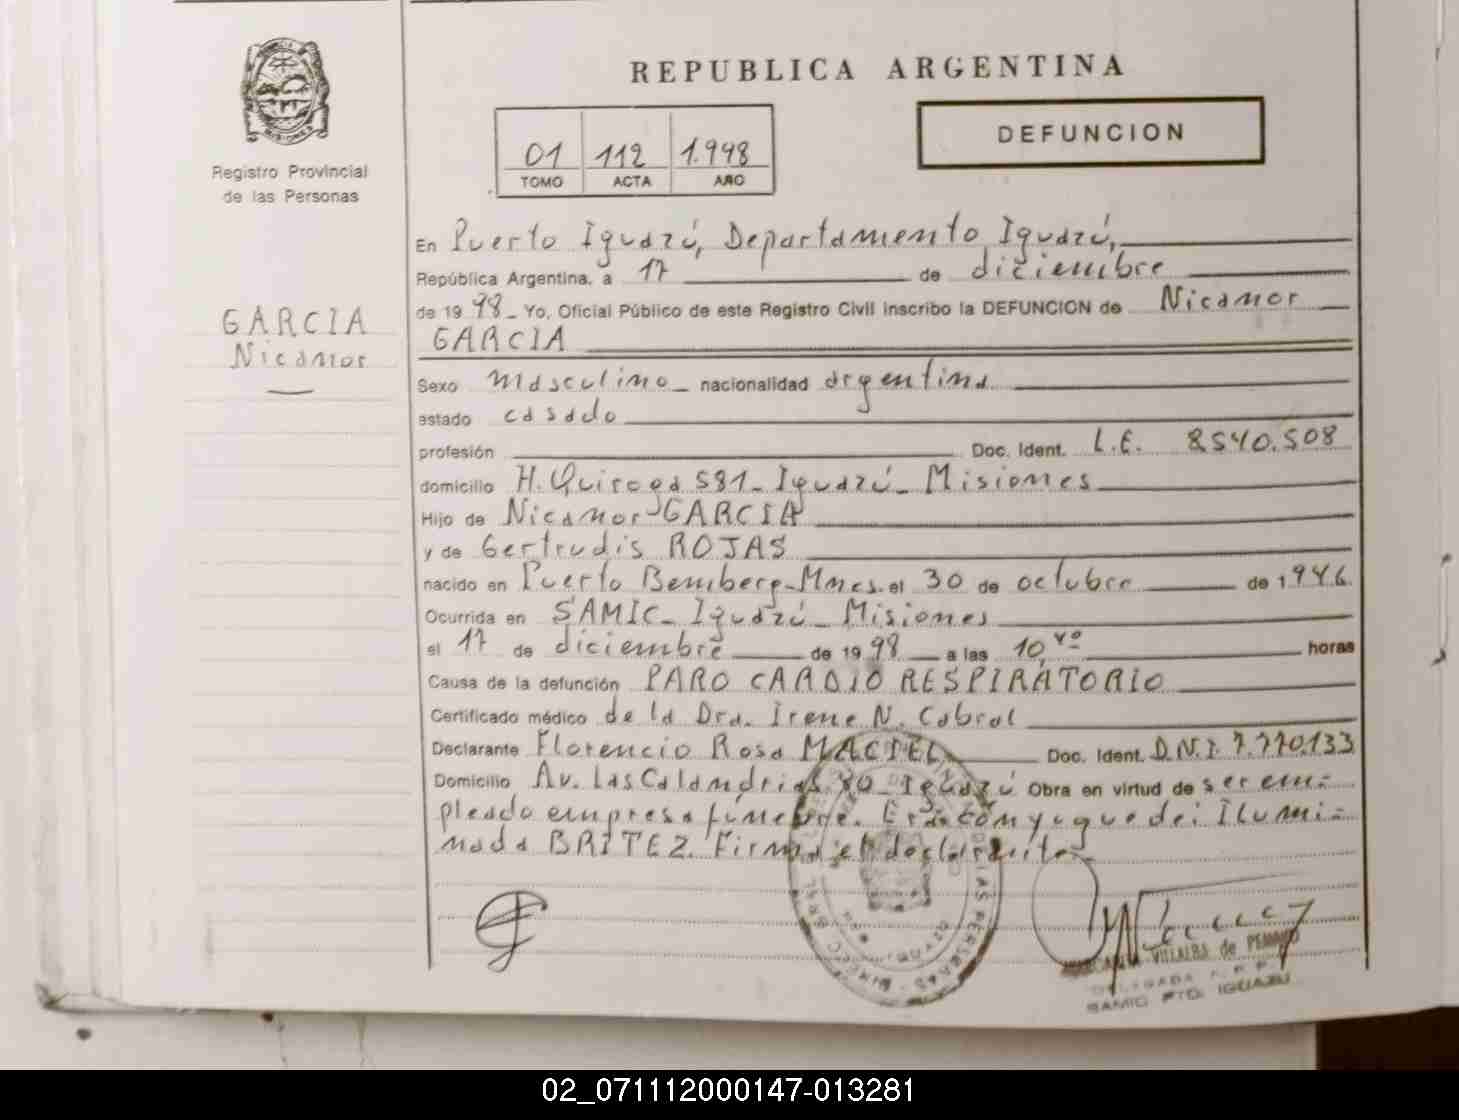 REPUBLICA ARGENTINA
MISIONES
Registro Provincial
de las Personas
01 112 1.998
TOMO ACTA AÑO
DEFUNCION
GARCIA
Nicanor
En Puerto Iguazú, Departamento Iguazú,
República Argentina, a 17 de diciembre
de 1998 Yo, Oficial Público de este Registro Civil inscribo la DEFUNCION de Nicanor
GARCIA
Sexo masculino nacionalidad argentina
estado casado
profesión Doc. Ident. L.E. 8540.508
domicilio H. Quiroga 581 - Iguazú - Misiones
Hijo de Nicanor GARCIA
y de Gertrudis ROJAS
nacido en Puerto Bemberg - Mnes. el 30 de octubre de 1946
Ocurrida en SAMIC - Iguazú - Misiones
el 17 de diciembre de 1998 a las 10, horas
Causa de la defunción PARO CARDIO RESPIRATORIO
Certificado médico de la Dra. Irene N. Cabral
Declarante Florencio Rosa MACIEL Doc. Ident. D.N.I. 7.770.133
Domicilio Av. Las Calandrias 80 - Iguazú Obra en virtud de ser em-
pleado empresa fúnebre. Era cónyugue de: Ilumi-
nada BRITEZ. Firma el declarante.
VILLALBA de
DELEGADA
SAMIC PTO. IGUAZU
02_071112000147-013281